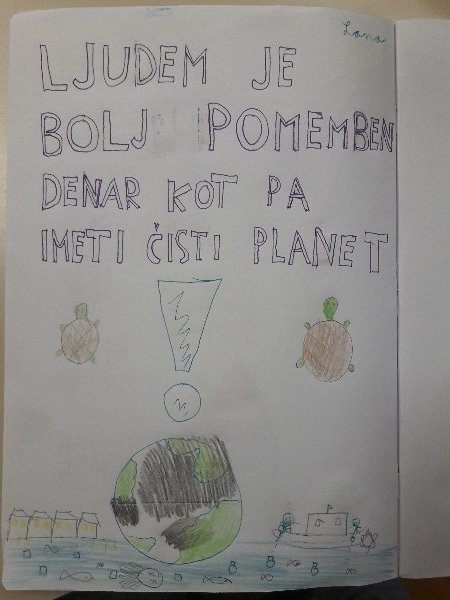 Lana
LJUDEM JE
BOLJ POMEMBEN
DENAR KOT PA
IMETI ČISTI PLANET
!